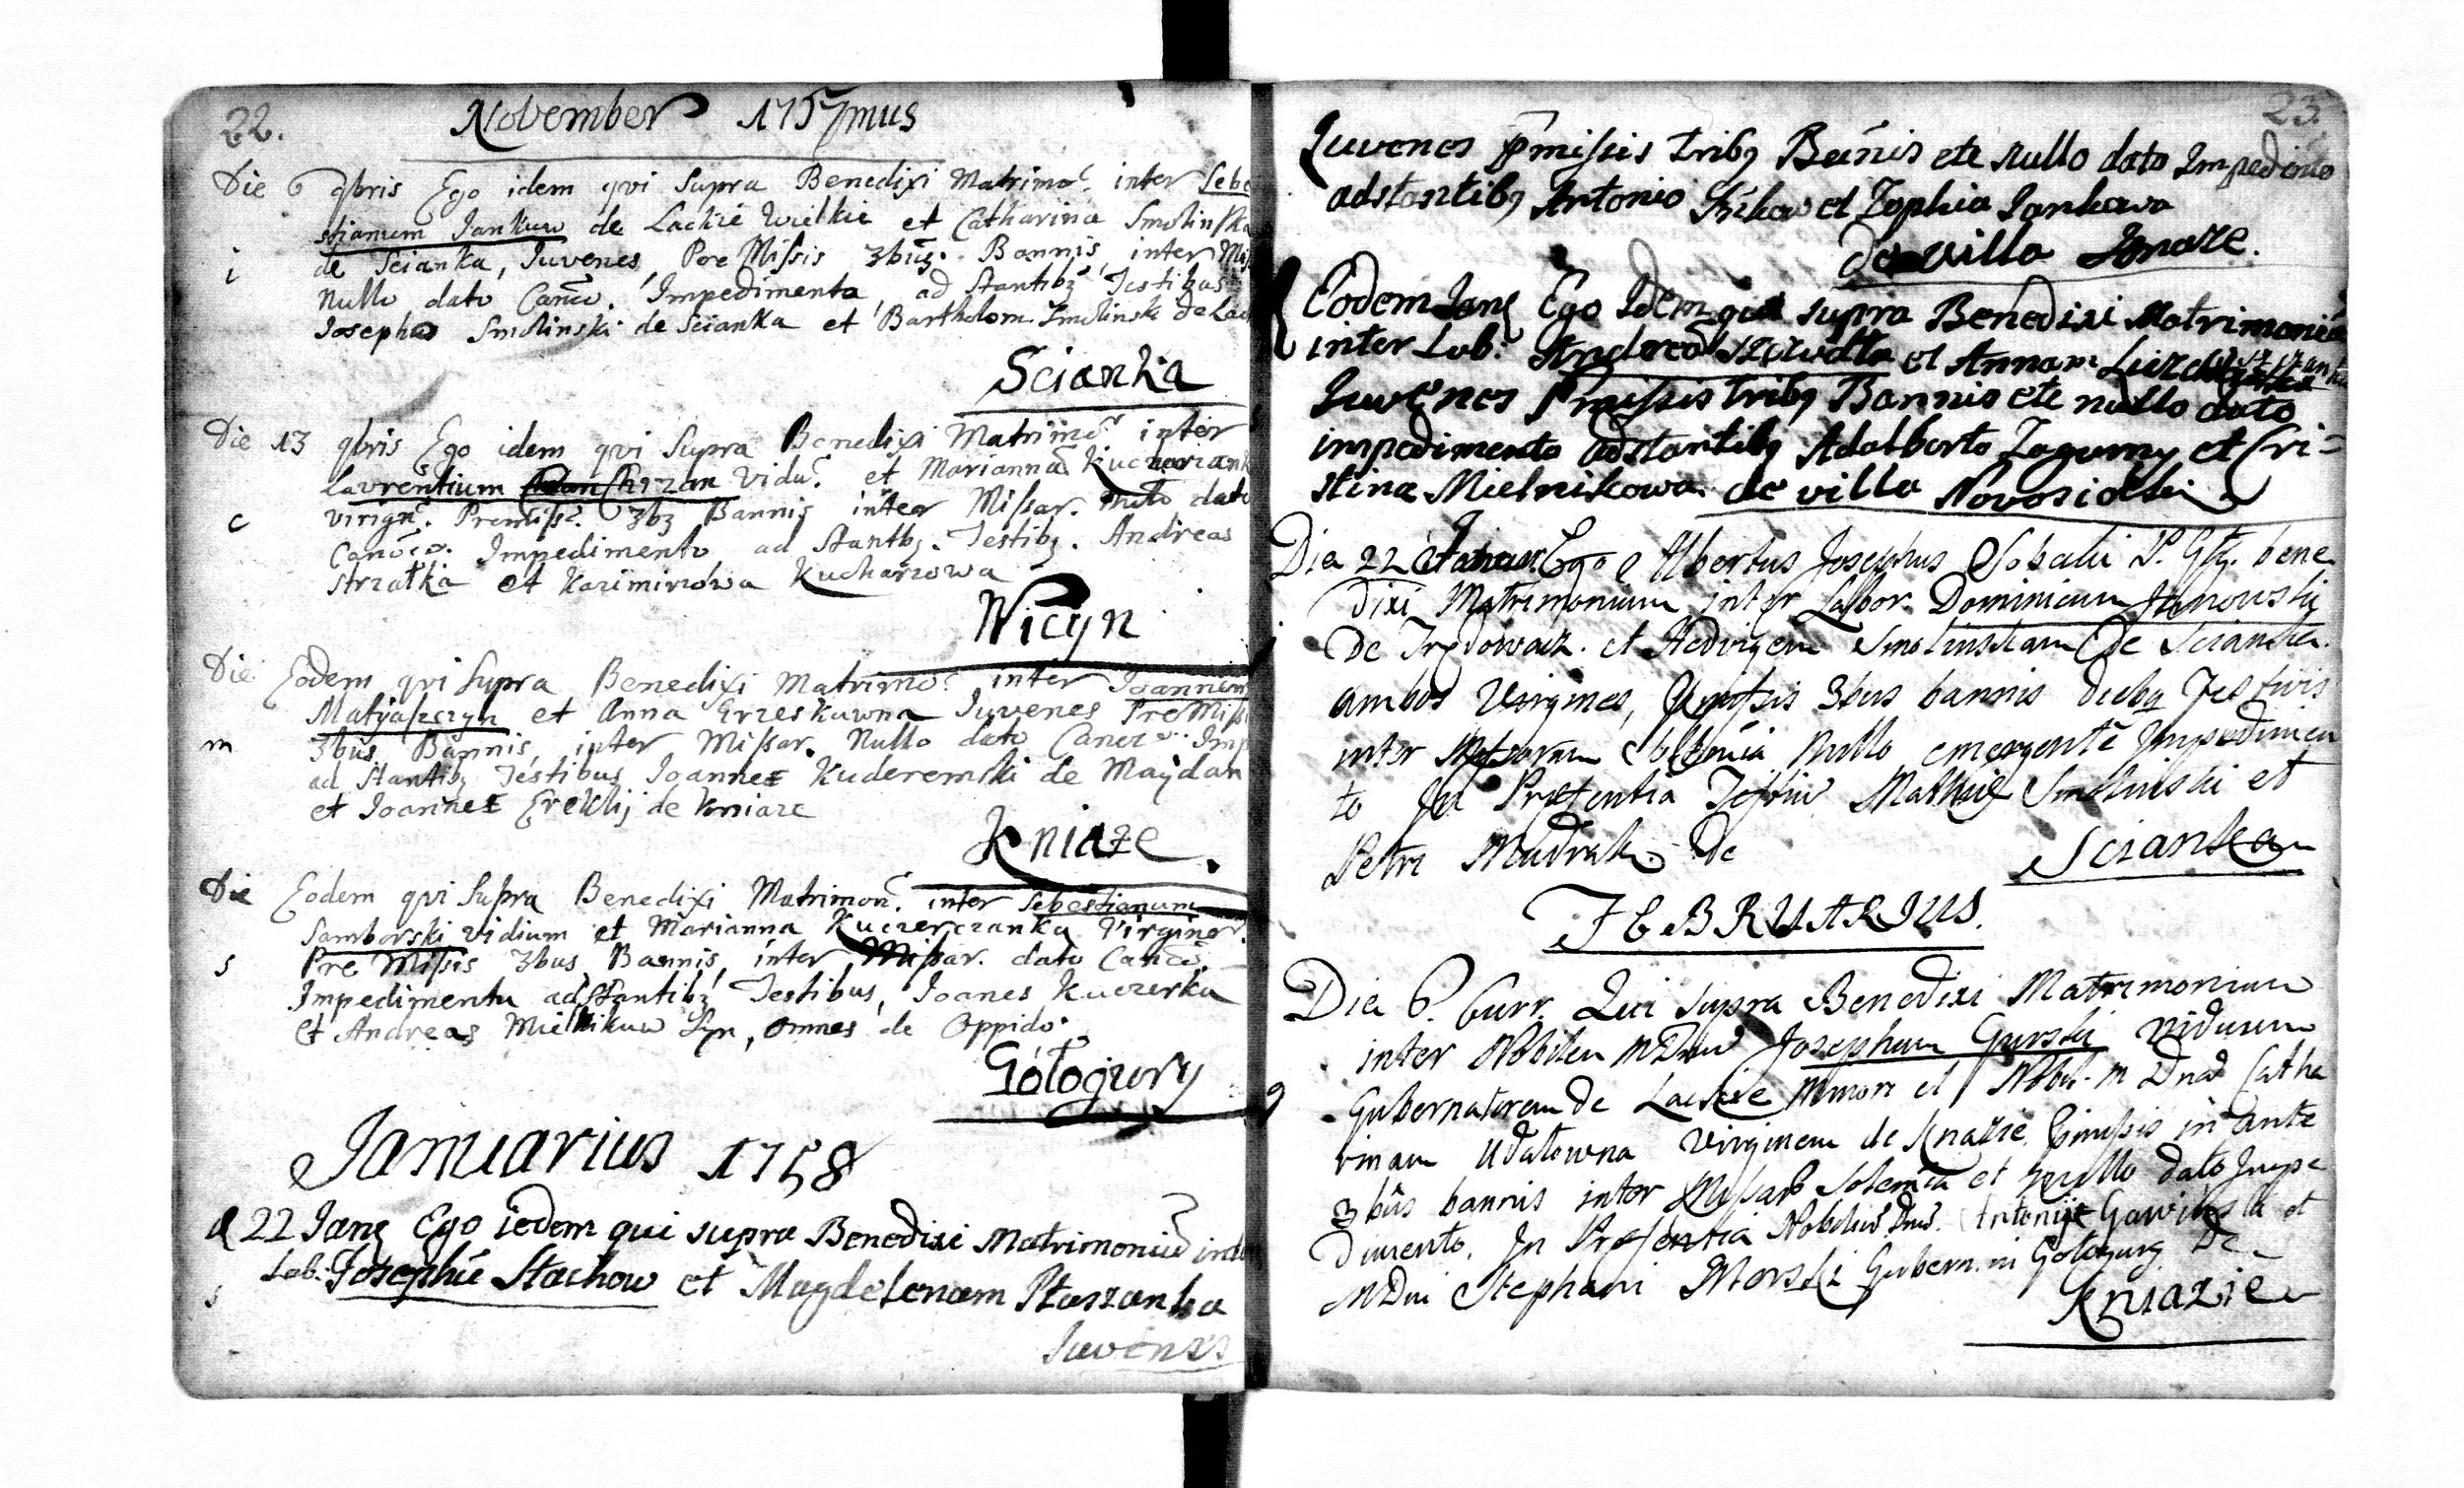 22.
November 1757mus
Die 6 9bris Ego idem qvi Supra Benedixi Matrimo. inter Sebe
stianum Jankuw de Lackie Wielkie et Catharina Smolinska
i de Scianka, Iuvenes, Pre Missis 3bus. Bannis, inter
Nullo dato Canco. Impedimenta, ad Stantibz Testibus
Josephus Smolinski de Scianka et Barthelom. Smolinski de Lac
Scianka
Die 13 9bris Ego idem qvi Supra Benedixi Matrimo inter
Lavrentium Chrzan Vidu. et Marianna Kucharzank
c virign. Premiss. 3bz Bannis inter Missar. Nulo dato
Canoco. Impedimento ad Stantbz. Testibz. Andreas
Strzałka et Kazimirzowa Kucharzowa
Nicyn
Die Eodem qvi Supra Benedixi Matrimo. inter Joannem
Matjaszczyn et Anna Grzeskuwna Iuvenes PreMissi
m 3bus Bannis, inter Missar. Nullo dato Canco. Imp
ad Stantibz Testibus Joannes Kuderemski de Majdan
et Joannes Ereklij de Kniaze
Kniaże.
Die Eodem qvi Supra Benedixi Matrimon. inter Sebestianum
Samborski vidium et Marianna Kuczerczanka Virgine.
s Pre Missis 3bus Bannis, inter Missar. dato Canco.
Impedimentu adStantibz Testibus, Joanes Kuczerka
et Andreas Mielnikuw Syn, omnes de Oppido.
Gołogury
Januarius 1758
d 22 Jany Ego iedem qui supra Benedixi Matrimoniu inter
s Lab. Josephu Stachow et Magdelenam Ptaszanka
Iuvenes
23.
Iuvenes pmissis tribq Banis etc nullo dato Impedimto
adstantibq Antonio et Zophia Jankowa
de villa Knaze.
Eodem Jany Ego Idem qui supra Benedixi Matrimoniu
inter Lab. Andrea et Annam
Iuvenes Pmissis tribq Bannis etc nullo dato
impedimento adstantibq Adalberto Zagumny et Cri-
stina Mielnikowa de villa Novosiolki
Die 22 Januar. Ego Albertus Josephus Sobalii bene
dixi Matrimonium inter Labor. Dominicum Janowski
De Trędowacz. et Hedvigem Smolinskam De Scianka.
ambos Virgines, Pmissis 3bus bannis diebq Festivis
inter Missarum Nullo emergente Impedimen
to In Præsentia Testiu Mathiæ Smolinski et
Petri Mudrak. De Scianka
FEBRUARIUS.
Die 6. Curr. Qui supra Benedixi Matrimonium
inter Nobilem MDnu Josephum Gurski Viduum
Gubernatorem De Lackie Minori et Nobil. M Dnad Catha
rinam Udatowna Virginem de Knazie. Pmissis in ante
3bus bannis inter Missar Solemia et nullo dato Impe
dimento. In Præsentia Nobiliu Dnor. Antonij et
MDni Stephani Morski Gubern. in Gologury De
Kniazie